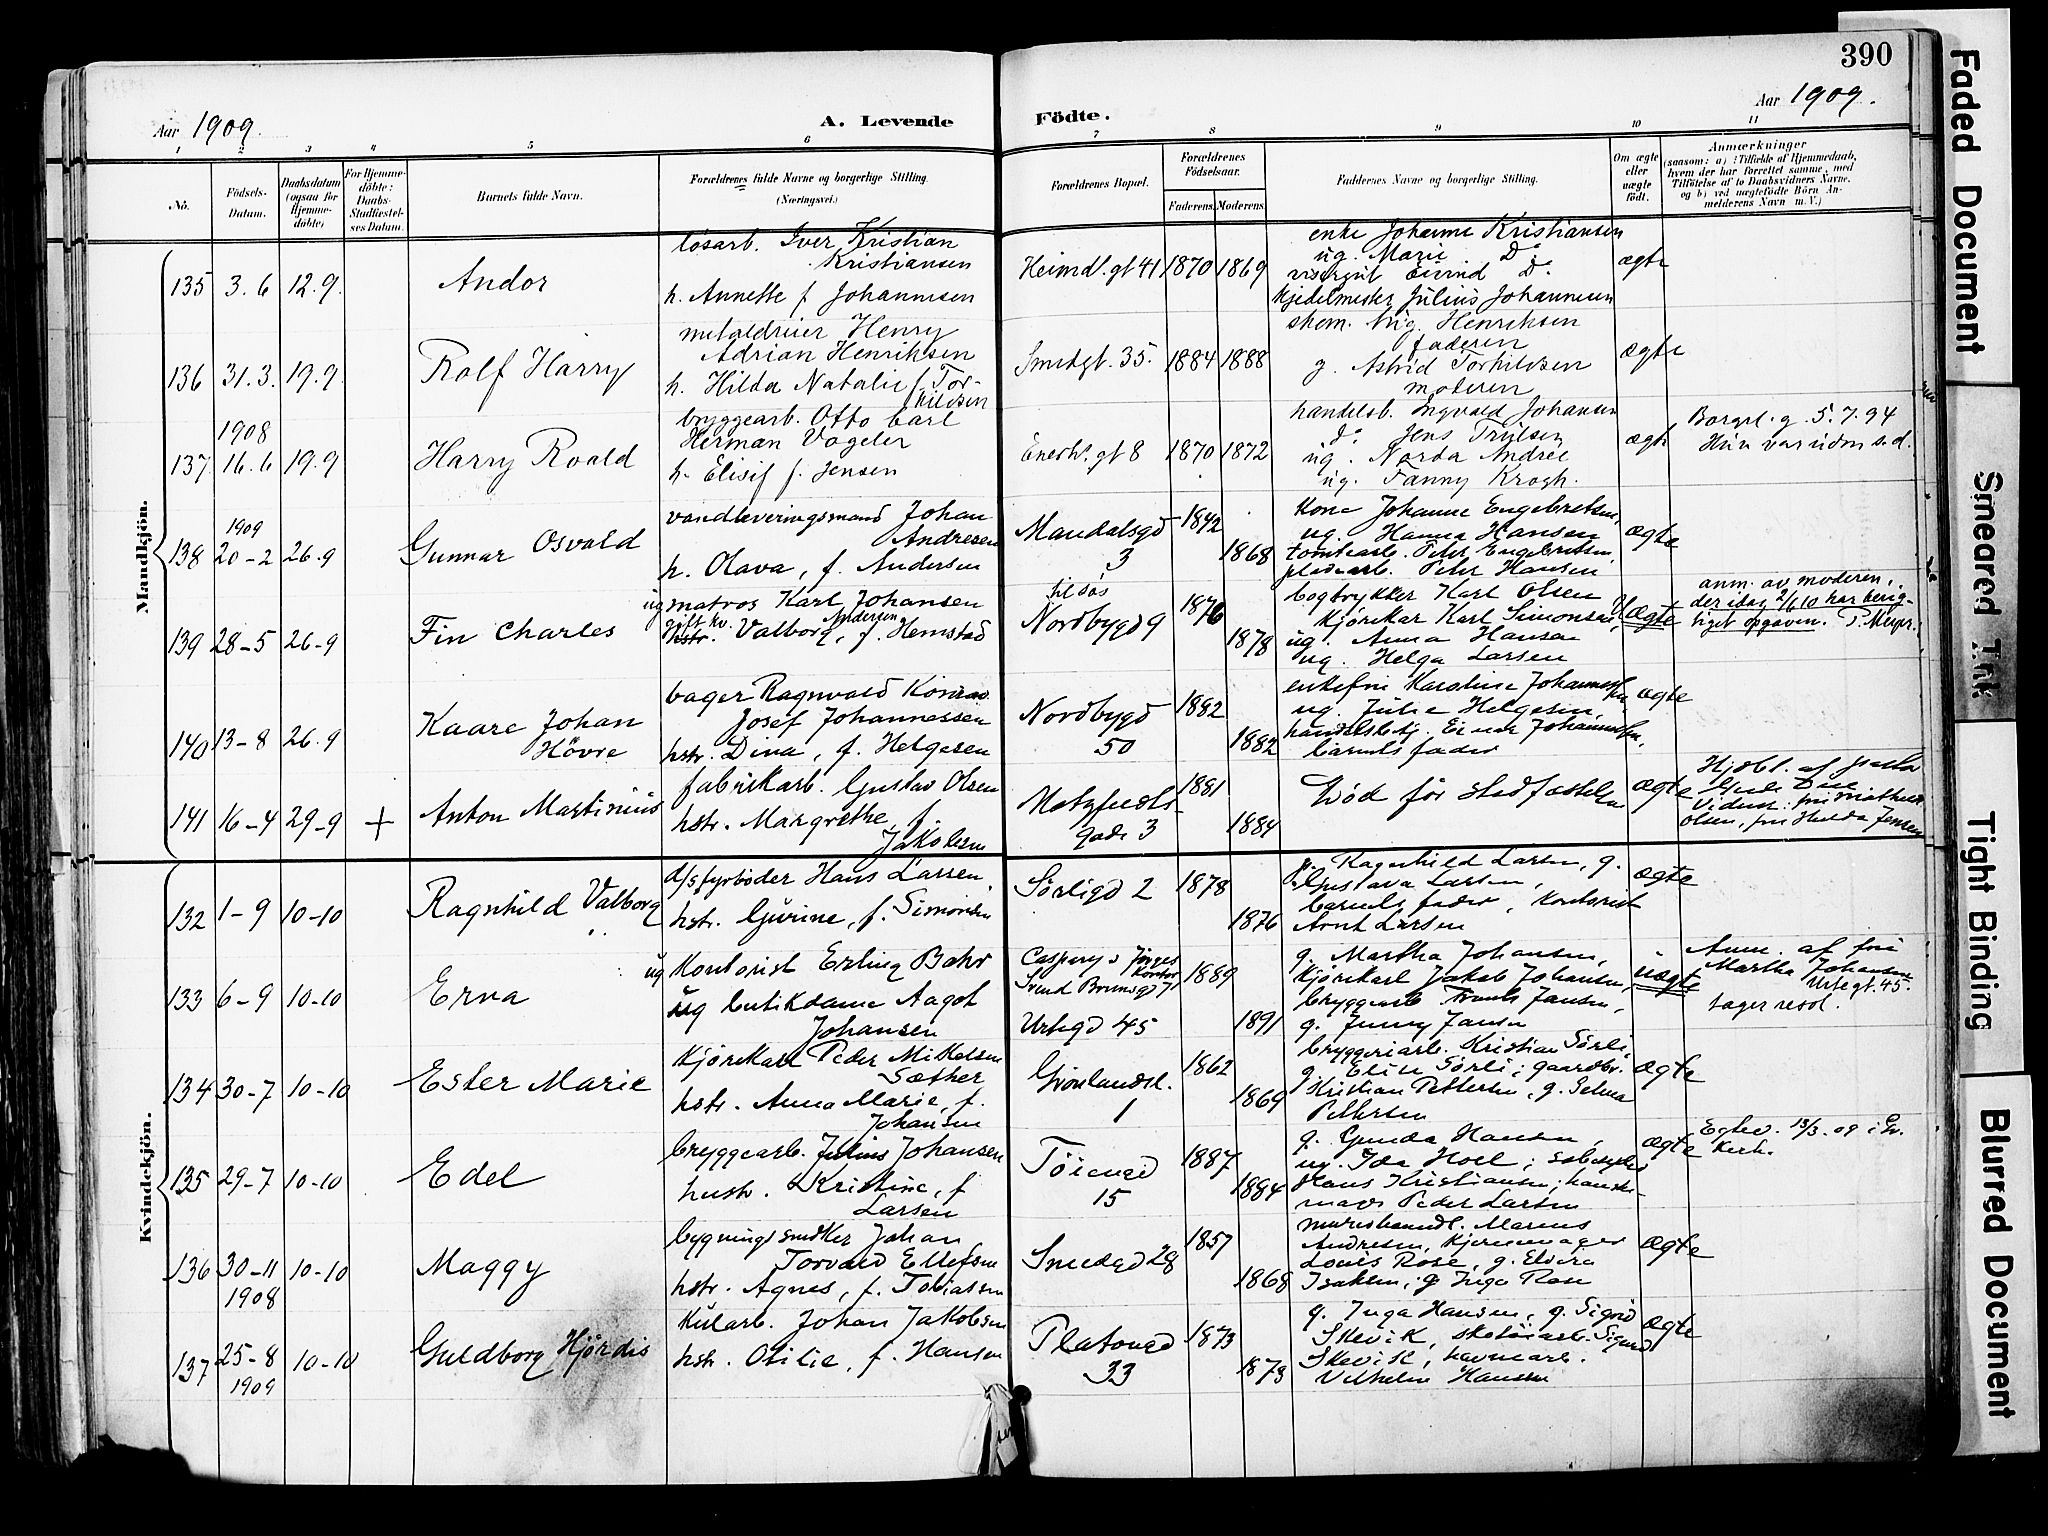 390
Aar 1909.
A. Levende
Födte.
Aar 1909.
1 2 3 4 5 6 7 8 9 10 11
No.
Födsels-
Datum.
Daabsdatum
(ogsaa for
Hjemme-
döbte)
For Hjemme-
döbte:
Daabs-
Stadfæstel-
ses Datum.
Barnets fulde Navn.
Forældrenes fulde Navne og borgerlige Stilling.
(Næringsvei.)
Forældrenes Bopæl.
Forældrenes
Födselsaar.
Faderens. Moderens.
Faddernes Navne og borgerlige Stilling.
Om ægte
eller
uægte
födt.
Anmærkninger
(saasom: a) i Tilfælde af Hjemmedaab,
hvem der har forrettet samme, med
Tilföielse af to Daabsvidners Navne,
og b) ved uægtefödte Börn An-
melderens Navn m. V.)
Mandkjön.
135 3.6 12.9. Andor
løsarb. Iver Kristian
Kristiansen
h. Annette f. Johannesen
Heimdl.gt 41 1870 1869
enke Johanne Kristiansen
ug. Marie Do
visergut Eivind Do
Kjedelmester Julius Johannesen
ægte
136 31.3. 19.9. Rolf Harry
metaldreier Henry
Adrian Henriksen
h. Hilda Natalie f. Tor-
kildsen
Smedgt. 35. 1884 1888
skom. Aug. Henriksen
faderen
g. Astrid Torkildsen
moderen
ægte
137 1908
16.6 19.9 Harry Roald
bryggearb. Otto Carl
Herman Vogeler
h. Elisif f. Jensen
Enerh.gt 8 1870 1872
handelsb. Ingvald Johansen
do Jens
ug. Norda Andree
ug. Fanny Krogh.
ægte
Borgerl. g. 5.7.94
Hun var uden s.d.
138 1909
20-2 26.9 Gunnar Osvald
vandleveringsmand Johan
Andresen
h. Olava, f. Andersen
Mandalsgd
3
1842 1868
Kone Johanne Engebretsen,
ug. Hanna Hansen
tomtearb. Peter Engebretsen
pladearb. Peter Hansen
ægte
139 28-5 26-9 Fin Charles
ug matros Karl Johansen
gift kv. Andersen
hstr. Valborg, f. Hemstad
tilds
Nordbygd 9
1876 1878
bogtrykker Karl Olsen
Kjørekar Karl Simonsen
ug. Anna Hansen
ug. Helga Larsen
uægte
anm. av moderen,
der idag 2/6 10 har berig-
tiget opgaven. P. Meyer.
140 13-8 26.9 Kaare Johan
Hövre
bager Ragnvald Konrad
Josef Johannessen
hstr. Dina, f. Helgesen
Nordbygd
50
1882 1882
enkefru Karoline Johannessen
ug. Julie Helgesen,
handelsbetj. Einar Johannessen,
barnets fader
ægte
141 16-4 29-9 + Anton Martinius
fabrikarb. Gustav Olsen
hstr. Margrethe, f.
Jakobsen
gade 3
1881 1884
Død før stadfæstelsen
ægte
Hjdbt. af
Vidner: fru Mathea
Olsen, fru Hulda Jensen
Kvindekjön.
132 1-9 10-10 Ragnhild Valborg
d/s fyrbøder Hans Larsen
hstr. Gurine, f. Simonsen
Sørligd 2 1878 1876
Ragnhild Larsen, g.
Gustava Larsen,
barnets fader, Kontorist
Arnt Larsen
ægte
133 6-9 10-10 Erna
ug Kontorist Erling Bahr
ug butikdame Aagot
Johansen
Svend Brunsgd 7
Urtegd 45
1889 1891
g. Martha Johansen,
Kjørekarl Jakob Johansen,
bryggearb Jansen,
g. Jenny Jansen
uægte
Anm. af fru
Martha Johansen
Urtegt. 45.
tager resol.
134 30-7 10-10 Ester Marie
Kjørekarl Peder Mikelsen
Sæther
hstr. Anna Marie, f.
Johansen
Grønlandsl.
1
1862 1869
bryggeriarb. Kristian Sørli,
g. Elise Sørli; gaardbr.
Kristian Pettersen, g. Selma
Pettersen
ægte
135 29-7 10-10 Edel
bryggearb. Julius Johansen
hustr. Kristine, f.
Larsen
Tøiengd
15
1887 1884
g. Gunda Hansen,
ug. Ida Hoel;
Hans Kristiansen; hanske-
mager Peder Larsen
ægte
Egtev. 13/3. 09 i Gr.
Kirk.
136 30-11
1908 10-10 Maggy
bygningssnedker Johan
Torvald Ellefsen
hstr. Agnes, f. Tobiassen
Smedgd 28
1857 1868
Marius
Andresen,
Louis Rose, g. Elvira
Isaksen; g. Inga Rose
ægte
137 25-8
1909 10-10 Guldborg Hjørdis
Kularb. Johan Jakobsen
hstr. Otilie, f. Hansen
Platougd
33
1873 1873
g. Inga Hansen, g. Sigrid
Skevik, skotøiarb. Sigurd
Skevik, havnearb.
Vilhelm Hansen
ægte
Faded Document
Smeared Ink
Tight Binding
Blurred Document